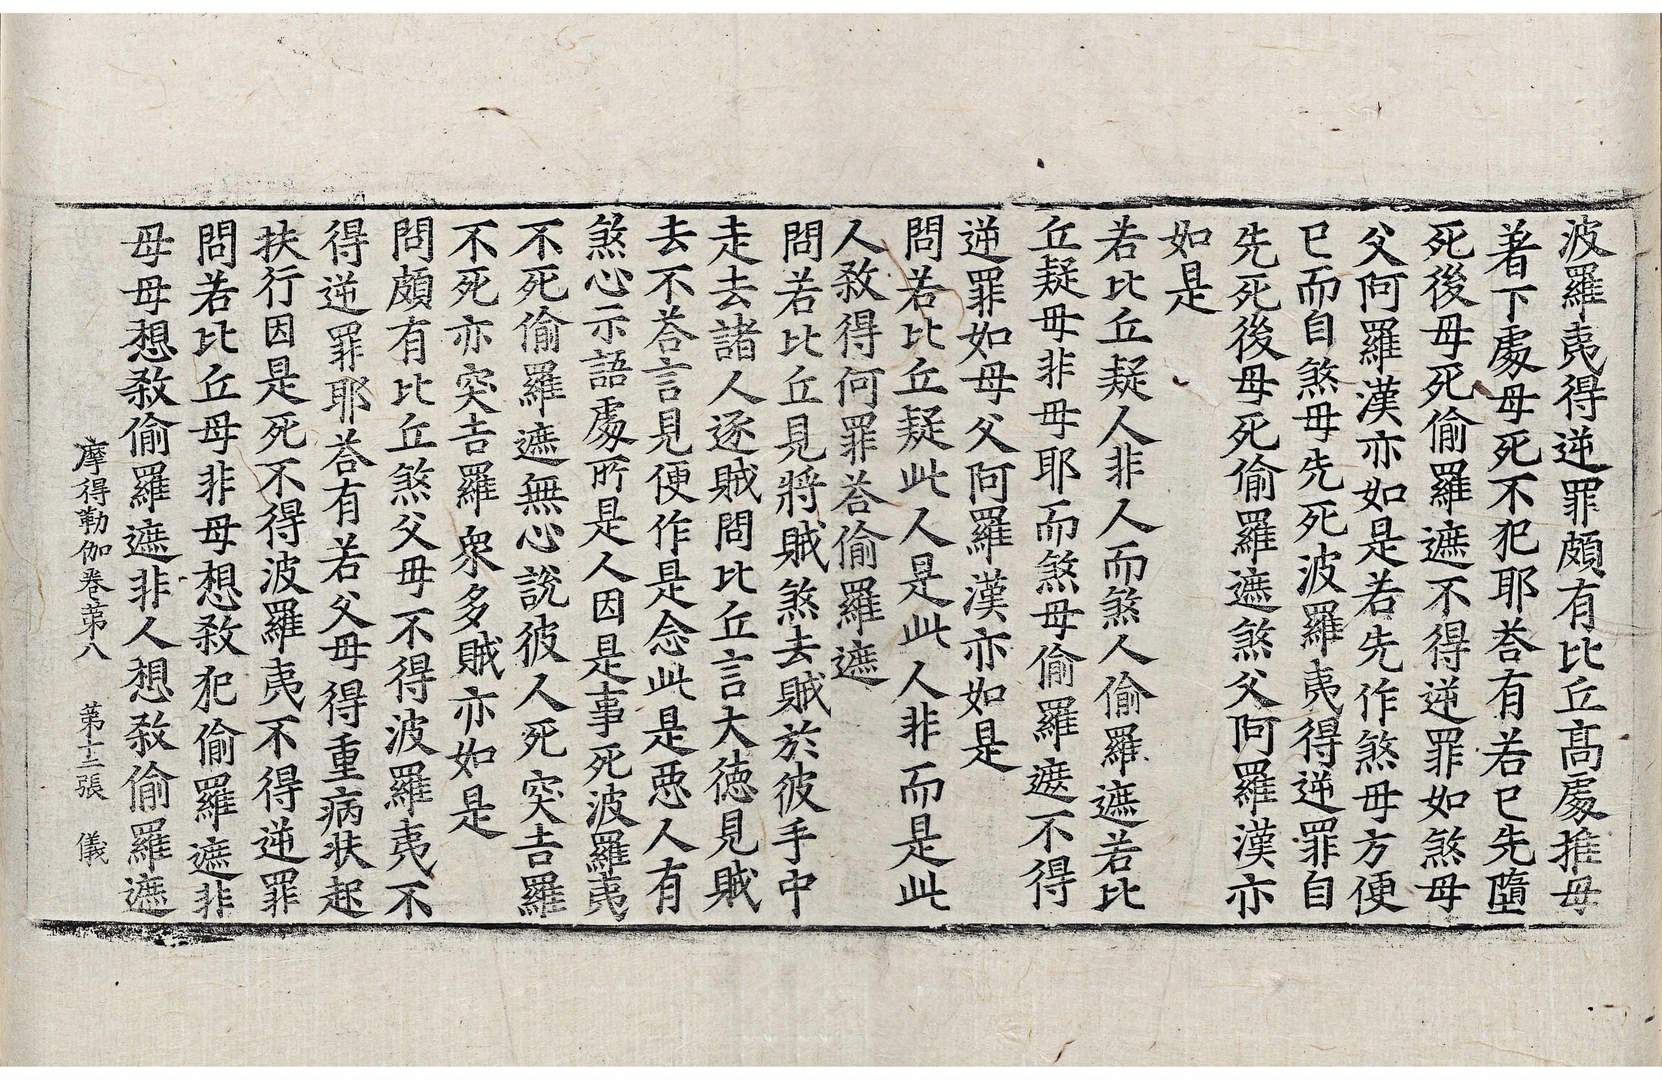 波羅夷得逆罪頗有比丘髙處推母
著下處母死不犯耶荅有若已先墮
死後母死偷羅遮不得逆罪如煞母
父阿羅漢亦如是若先作煞母方便
已而自煞母先死波羅夷得逆罪自
先死後母死偷羅遮煞父阿羅漢亦
如是
若比丘疑人非人而煞人偷羅遮若比
丘疑母非母耶而煞母偷羅遮不得
逆罪如母父阿羅漢亦如是
問若比丘疑此人是此人非而是此
人敎得何罪荅偷羅遮
問若比丘見將賊煞去賊於彼手中
走去諸人逐賊問比丘言大德見賊
去不荅言見便作是念此是惡人有
煞心示語處所是人因是事死波羅夷
不死偷羅遮無心說彼人死突吉羅
不死亦突吉羅衆多賊亦如是
問頗有比丘煞父母不得波羅夷不
得逆罪耶荅有若父母得重病扶起
扶行因是死不得波羅夷不得逆罪
問若比丘母非母想敎犯偷羅遮非
母母想敎偷羅遮非人想敎偷羅遮
摩得勒伽卷苐八　苐十三張　儀